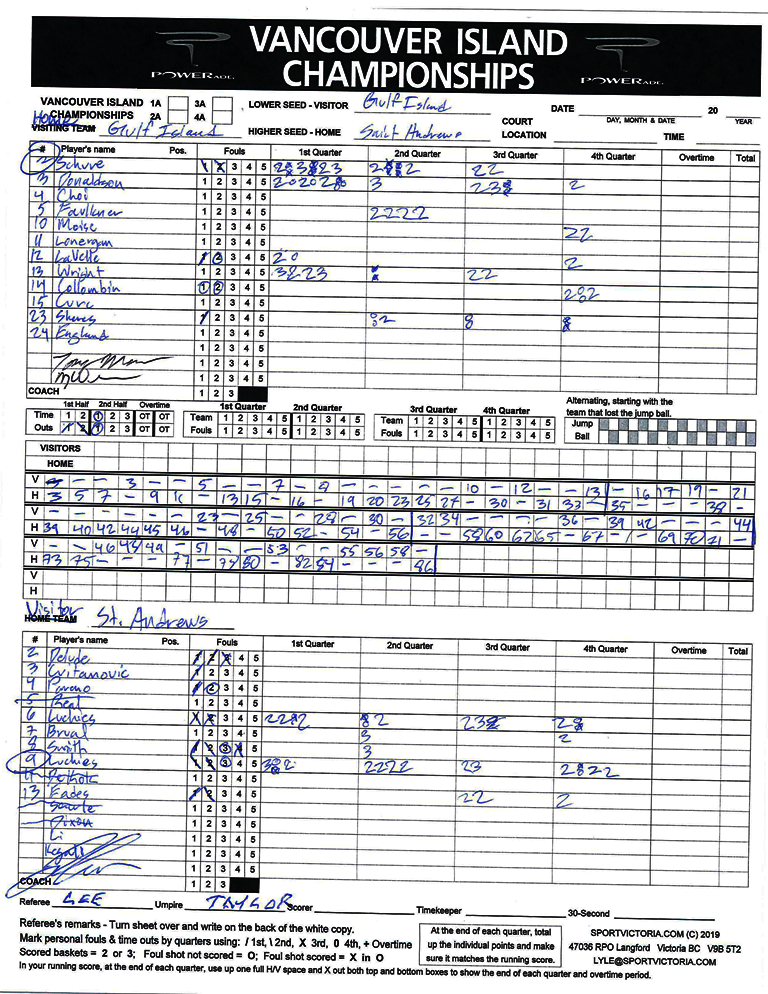 VANCOUVER ISLAND
CHAMPIONSHIPS
POWERADE
POWERADE
VANCOUVER ISLAND 1A 3A
CHAMPIONSHIPS 2A 4A
LOWER SEED - VISITOR Gulf Island
HIGHER SEED - HOME Saint Andrews
COURT
LOCATION
DATE 20
DAY, MONTH & DATE YEAR
TIME
Home
VISITING TEAM Gulf Island
# Player's name Pos. Fouls 1st Quarter 2nd Quarter 3rd Quarter 4th Quarter Overtime Total
2 Schure 1 2 3 4 5 22
3 Donaldson 1 2 3 4 5 3 2
4 Choi 1 2 3 4 5
5 Faulkner 1 2 3 4 5 2222
10 Moise 1 2 3 4 5 22
11 Lonergan 1 2 3 4 5
12 LaVelle 1 2 3 4 5 20 2
13 Wright 1 2 3 4 5 3223 22
14 Collombin 1 2 3 4 5
15 1 2 3 4 5
23 Shores 1 2 3 4 5
24 England 1 2 3 4 5
1 2 3 4 5
1 2 3 4 5
1 2 3 4 5
COACH 1 2 3
1st Half 2nd Half Overtime
Time 1 2 1 2 3 OT OT
Outs 1 2 1 2 3 OT OT
1st Quarter 2nd Quarter
Team 1 2 3 4 5 1 2 3 4 5
Fouls 1 2 3 4 5 1 2 3 4 5
3rd Quarter 4th Quarter
Team 1 2 3 4 5 1 2 3 4 5
Fouls 1 2 3 4 5 1 2 3 4 5
Alternating, starting with the
team that lost the jump ball.
Jump
Ball
VISITORS
HOME
V 3 - - 3 - - 5 - - - 7 - 9 - - - - - - 10 - 12 - - 13 - 16 17 19 - 21
H 3 5 7 - 9 11 - 13 15 - 16 - 19 20 23 25 27 - 30 - 31 33 - 35 - - - - 38 -
V - - - - - - 23 - 25 - - - 28 - 30 - 32 34 - - - - 36 - 39 42 - - - 44
H 39 40 42 44 45 46 - 48 - 50 52 - 54 - 56 - - 58 60 62 65 - 67 - - 69 70 71 -
V - - 46 48 49 - 51 - - - 53 - - 55 56 58 -
H 73 75 - - - 77 - 79 80 - 82 84 - - - 86
V
H
Visitor
HOME TEAM St. Andrews
# Player's name Pos. Fouls 1st Quarter 2nd Quarter 3rd Quarter 4th Quarter Overtime Total
2 Delude 1 2 3 4 5
3 Cvitanovic 1 2 3 4 5
4 Pareno 1 2 3 4 5
5 Beal 1 2 3 4 5
6 Luchies 1 2 3 4 5
7 Brual 1 2 3 4 5 3 2
8 Smith 1 2 3 4 5 3
9 Luchies 1 2 3 4 5 2222 23
11 1 2 3 4 5
13 Eades 1 2 3 4 5 22 2
1 2 3 4 5
Dixon 1 2 3 4 5
Li 1 2 3 4 5
1 2 3 4 5
1 2 3 4 5
COACH 1 2 3
Referee LEE Umpire TAYLOR Scorer Timekeeper 30-Second
Referee's remarks - Turn sheet over and write on the back of the white copy.
Mark personal fouls & time outs by quarters using: / 1st, \ 2nd, X 3rd, 0 4th, + Overtime
Scored baskets = 2 or 3; Foul shot not scored = O; Foul shot scored = X in O
In your running score, at the end of each quarter, use up one full H/V space and X out both top and bottom boxes to show the end of each quarter and overtime period.
At the end of each quarter, total
up the individual points and make
sure it matches the running score.
SPORTVICTORIA.COM (C) 2019
47036 RPO Langford Victoria BC V9B 5T2
LYLE@SPORTVICTORIA.COM